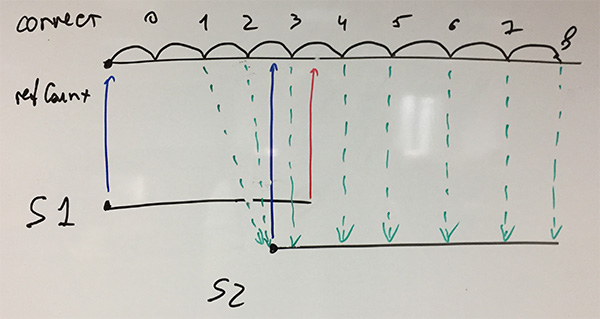 connect 0 1 2 3 4 5 6 7 8
refCount
S1
S2